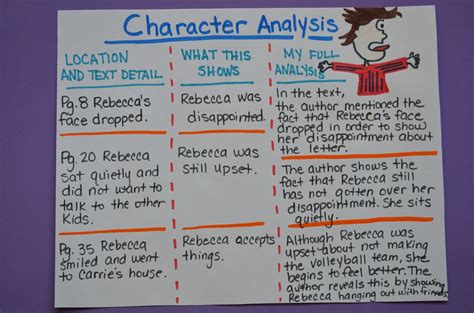 Character Analysis
LOCATION
AND TEXT DETAIL
WHAT THIS
SHOWS
MY FULL
ANALYSIS
Pg.8 Rebecca's
face dropped.
Rebecca was
disappointed.
In the text,
the author mentioned the
fact that Rebecca's face
dropped in order to show
her disappointment about
the letter.
Pg. 20 Rebecca
sat quietly and
did not want to
talk to the other
Kids.
Rebecca was
still upset.
The author shows the
fact that Rebecca still
has not gotten over her
disappointment. She sits
quietly.
Pg. 35 Rebecca
smiled and went
to Carrie's house.
Rebecca accepts
things.
Although Rebecca was
upset about not making
the volleyball team, she
begins to feel better. The
author reveals this by showing
Rebecca hanging out with friends